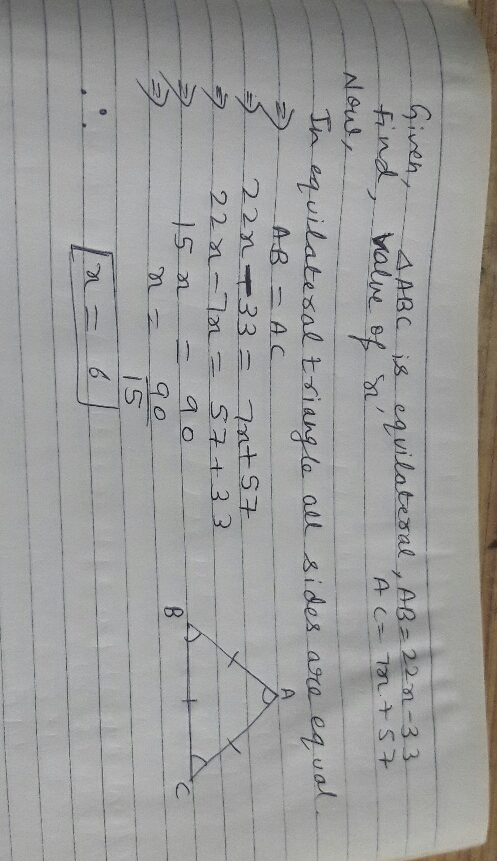 Given, △ABC is equilateral, AB = 22x - 33
AC = 7x + 57
find, value of 'x'
Now,
In equilateral triangle all sides are equal.
⇒ AB = AC
⇒ 22x - 33 = 7x + 57
⇒ 22x - 7x = 57 + 33
⇒ 15x = 90
⇒ x = 90/15
∴ x = 6
A
B
C